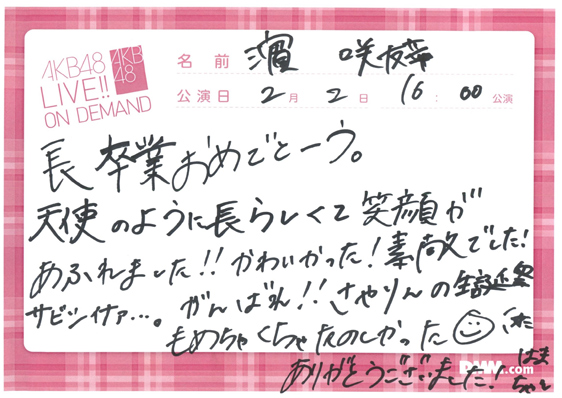 AKB48
LIVE!!
ON DEMAND
AKB
48
名前 濱 咲友菜
公演日 2月2日 16:00公演
長 卒業おめでとーう。
天使のように長らしくて笑顔が
あふれました!!かわいかった!素敵でした!
サビシイナァ…。がんばれ!!さやりんの生誕祭
もめちゃくちゃたのしかった
ありがとうございました!
はま
ちゃん
DMM.com